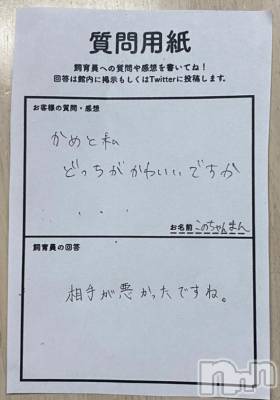 質問用紙
飼育員への質問や感想を書いてね！
回答は館内に掲示もしくはTwitterに投稿します。
お客様の質問・感想
かめと私
どっちがかわいいですか
・・・
お名前 このちゃんまん
飼育員の回答
相手が悪かったですね。